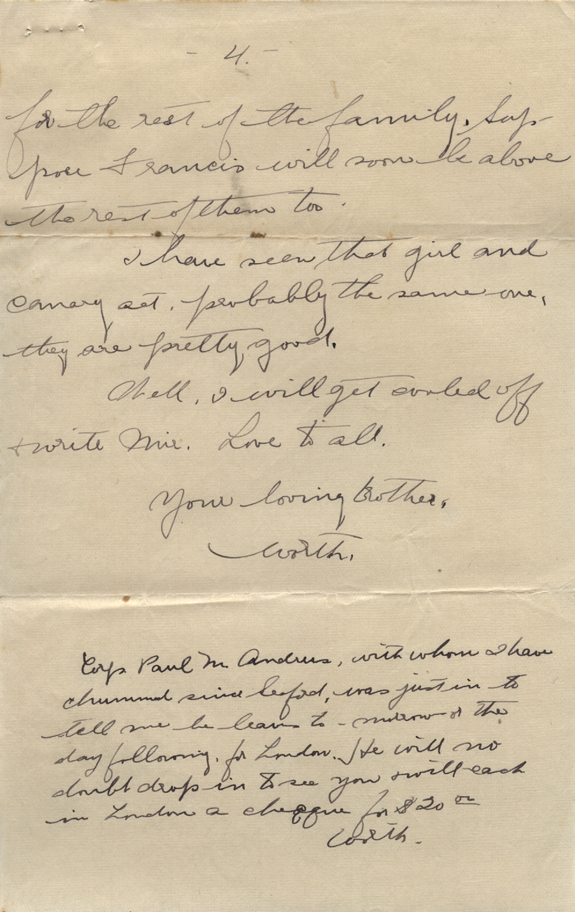 - 4. -
for the rest of the family. Sup-
pose Francis will soon be above
the rest of them too.
I have seen that girl and
canary act, probably the same one,
they are pretty good.
Well, I will get cooled off
+ write Mie. Love to all.
Your loving brother,
Worth.
Corp Paul M Andrus, with whom I have
chummed since Seaford, was just in to
tell me he leaves to-morrow or the
day following, for London. He will no
doubt drop in to see you & will cash
in London a cheque for $20 00
Worth.